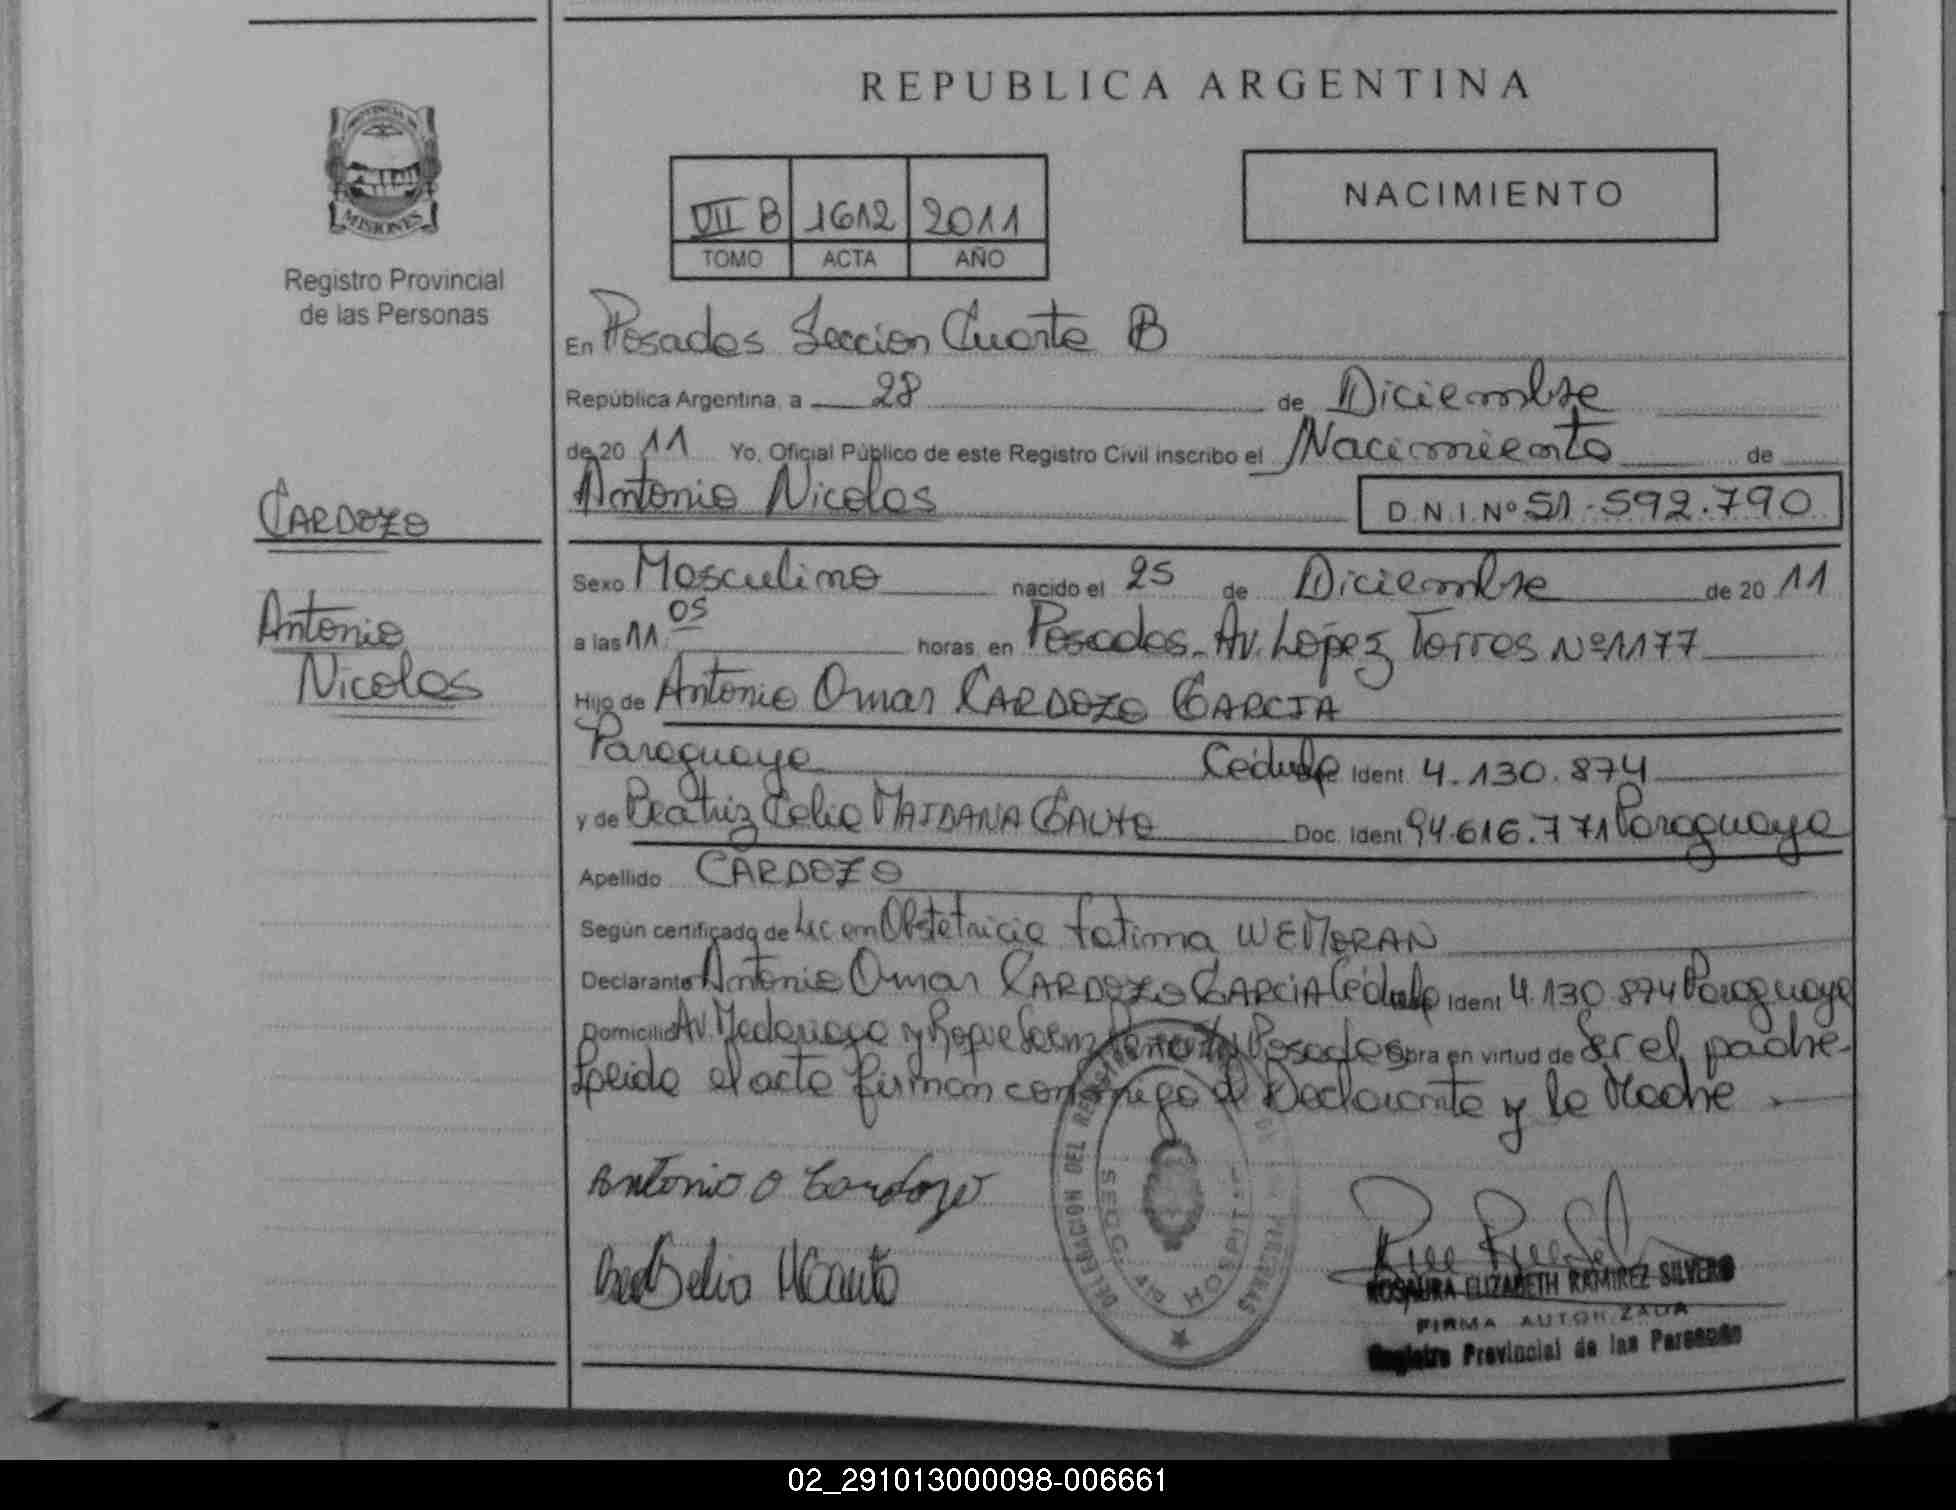 REPUBLICA ARGENTINA
PROVINCIA DE
MISIONES
Registro Provincial
de las Personas
VII B 1612 2011
TOMO ACTA AÑO
NACIMIENTO
En Posadas Seccion Cuarta B
República Argentina, a 28 de Diciembre
de 20 11 Yo, Oficial Público de este Registro Civil inscribo el Nacimiento de
Antonio Nicolas D.N.I.Nº 51.592.790
CARDOZO
Antonio
Nicolas
Sexo Masculino nacido el 25 de Diciembre de 20 11
a las 11:05 horas, en Posadas-Av. López Torres Nº1177
Hijo de Antonio Omar CARDOZO GARCIA
Paraguaya Cédula Ident 4.130.874
y de Beatriz Celia MAIDANA GAUTO Doc. Ident 94.616.771 Paraguaya
Apellido CARDOZO
Según certificado de Lic en Obstetricia Fatima WEMORAN
Declarante Antonio Omar CARDOZO GARCIA Cédula Ident 4.130.874 Paraguaya
Domicilio Av. y Roque Saenz Peña Posadas obra en virtud de Ser el padre-
Leida el acta firman conmigo el Declarante y la Madre
Antonio O Cardozo
DELEGACION DEL REGISTRO DE LAS PERSONAS
SECC. 4ta HOSPITAL
ROSAURA ELIZABETH RAMIREZ SILVERO
FIRMA AUTORIZADA
Registro Provincial de las Personas
02_291013000098-006661